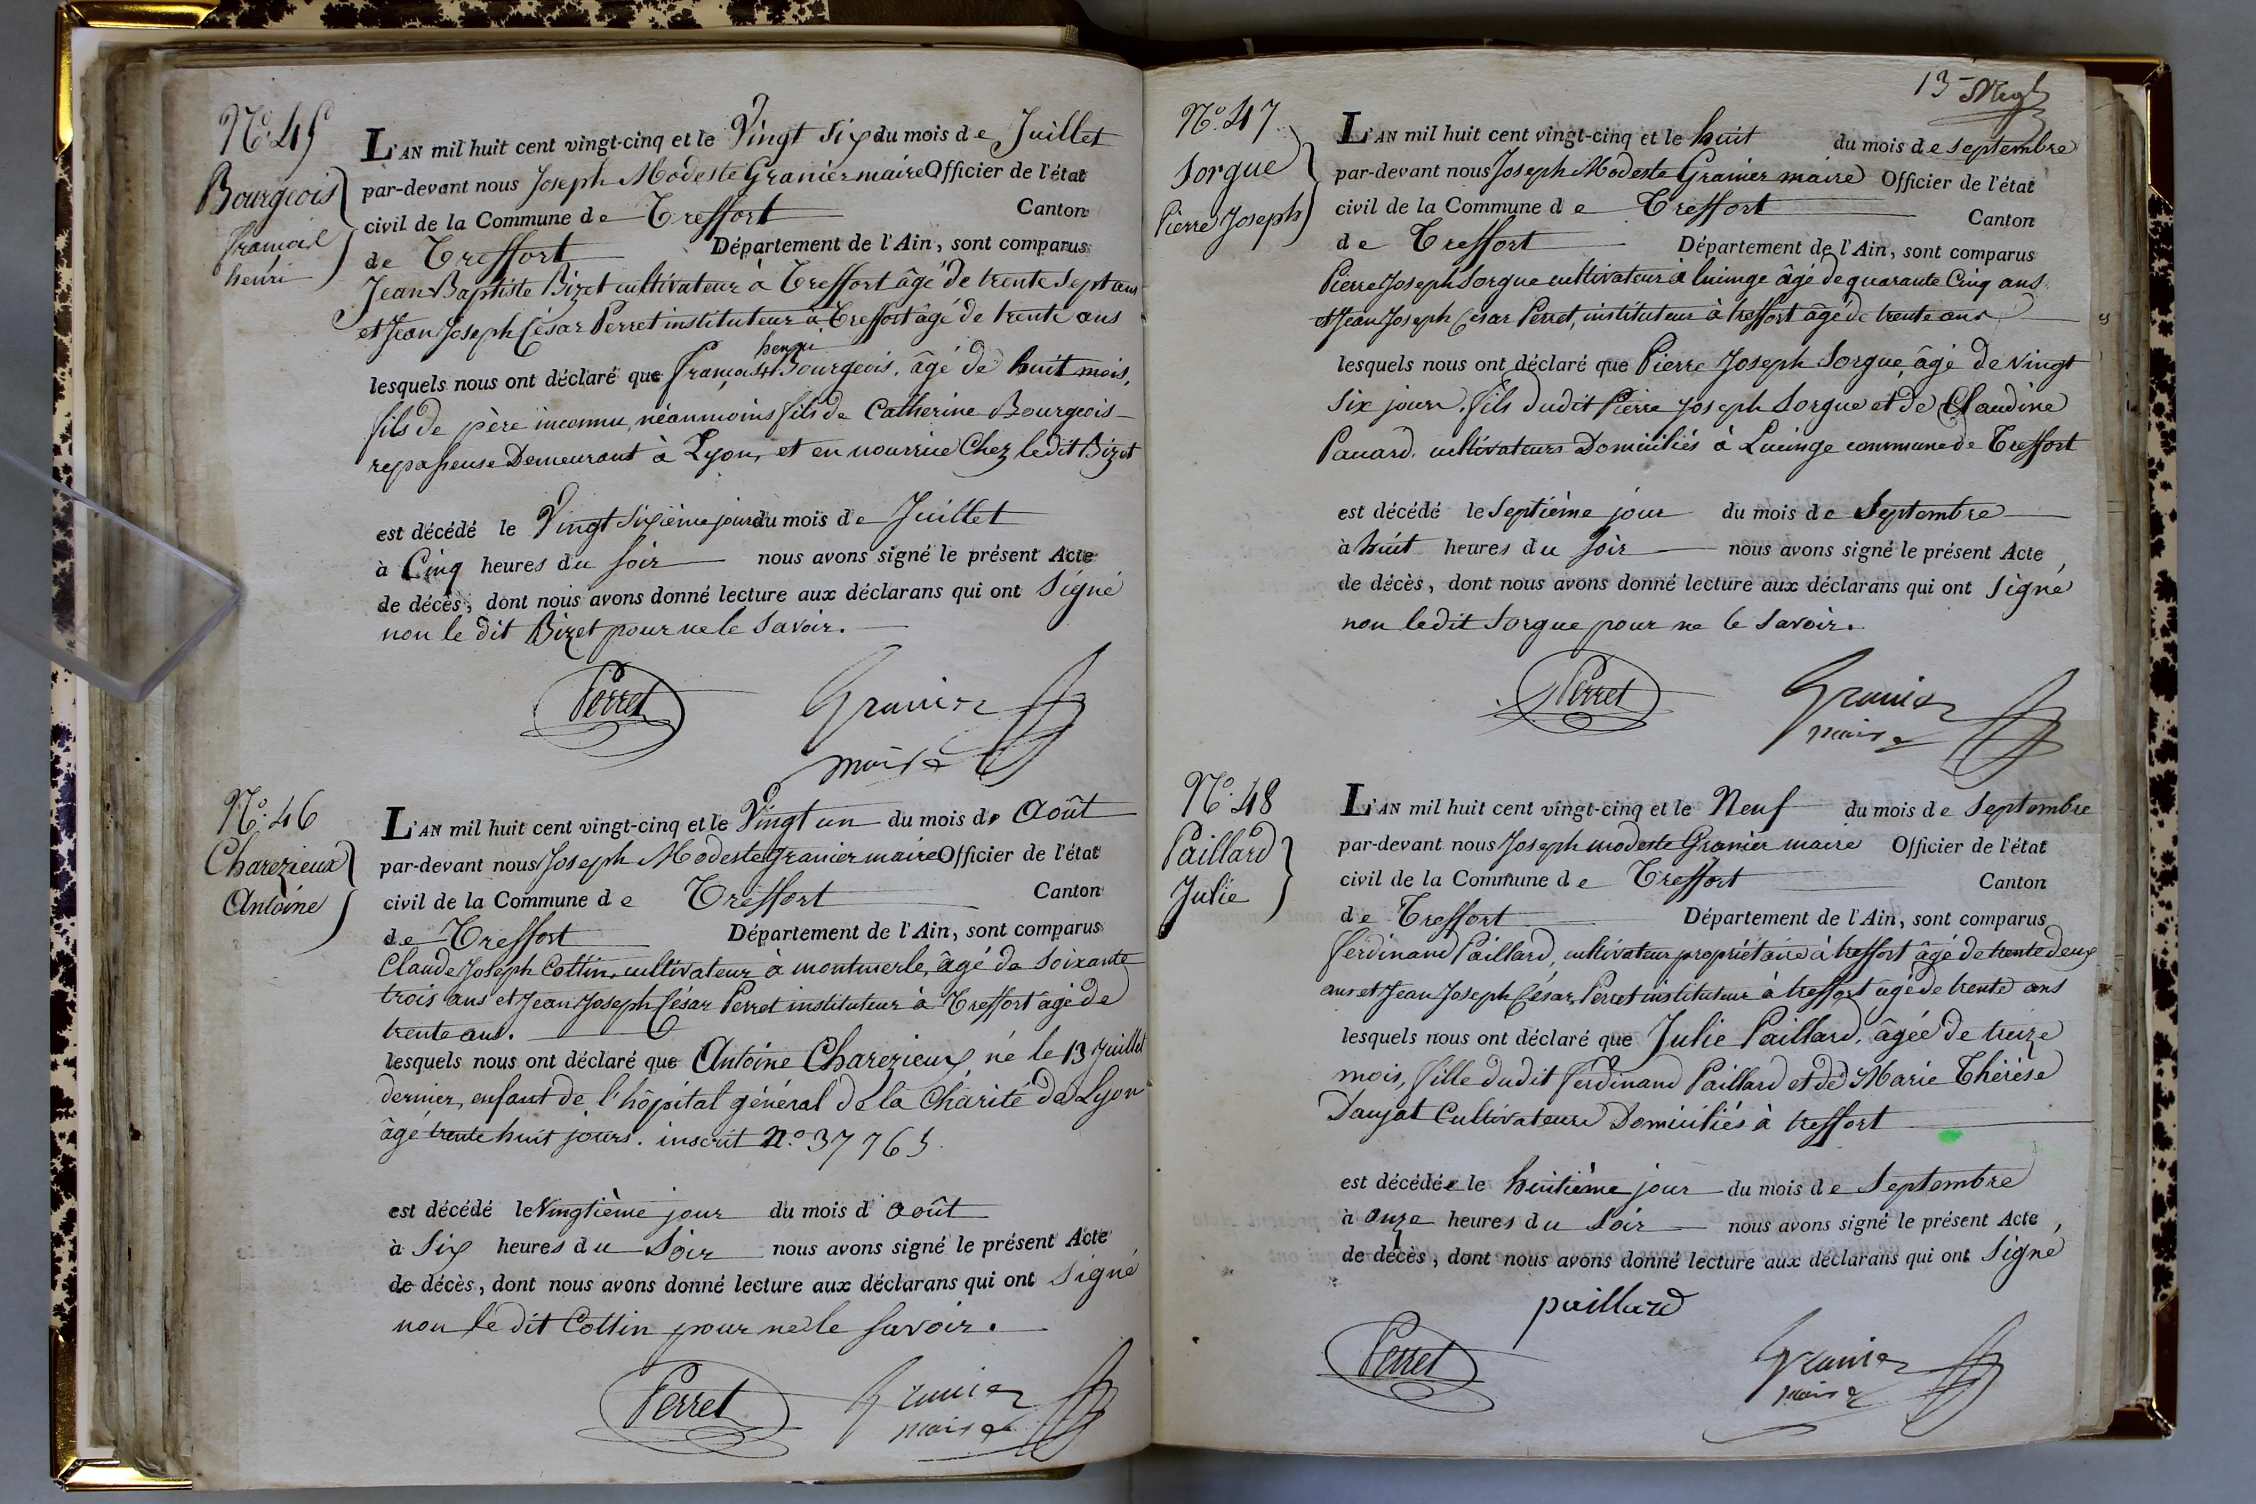 N.º 45
Bourgeois
françois
henri
L'AN mil huit cent vingt-cinq et le Vingt Six du mois de Juillet
par-devant nous Joseph Modeste Granier maire Officier de l'état
civil de la Commune de Treffort Canton
de Treffort Département de l'Ain, sont comparus
Jean Baptiste Bizet cultivateur à Treffort âgé de trente Sept ans
et Jean Joseph César Perret instituteur à Treffort âgé de trente ans
henri
lesquels nous ont déclaré que françois Bourgeois, âgé de huit mois,
fils de père inconnu, néanmoins fils de Catherine Bourgeois
repasseuse Demeurant à Lyon, et en nourrice Chez ledit Bizet
est décédé le Vingt Sixième jour du mois de Juillet
à Cinq heures du soir nous avons signé le présent Acte
de décès, dont nous avons donné lecture aux déclarans qui ont Signé
non le dit Bizet pour ne le Savoir.
Perret Granier
maire
N.º 46
Charezieux
Antoine
L'AN mil huit cent vingt-cinq et le Vingt un du mois d' Août
par-devant nous Joseph Modeste Granier maire Officier de l'état
civil de la Commune de Treffort Canton
de Treffort Département de l'Ain, sont comparus
Claude Joseph Cottin, cultivateur à montmerle, âgé de Soixante
trois ans et Jean Joseph César Perret instituteur à Treffort âgé de
trente ans.
lesquels nous ont déclaré que Antoine Charezieux né le 13 Juillet
dernier, enfant de l'hôpital général de la Charité de Lyon
âgé trente huit jours. inscrit N.º 37765
est décédé le Vingtième jour du mois d' Août
à Six heures du Soir nous avons signé le présent Acte
de décès, dont nous avons donné lecture aux déclarans qui ont Signé
non le dit Cottin pour ne le Savoir.
Perret Granier
maire
13
N.º 47
Sorgue
Pierre Joseph
L'AN mil huit cent vingt-cinq et le huit du mois de Septembre
par-devant nous Joseph Modeste Granier maire Officier de l'état
civil de la Commune de Treffort Canton
de Treffort Département de l'Ain, sont comparus
Pierre Joseph Sorgue cultivateur à lucinge âgé de quarante Cinq ans
et Jean Joseph César Perret, instituteur à treffort âgé de trente ans
lesquels nous ont déclaré que Pierre Joseph Sorgue, âgé de Vingt
Six jours, fils dudit Pierre Joseph Sorgue et de Claudine
Pauard, cultivateurs Domiciliés à Lucinge commune de Treffort
est décédé le Septième jour du mois de Septembre
à huit heures du Soir nous avons signé le présent Acte
de décès, dont nous avons donné lecture aux déclarans qui ont Signé
non ledit Sorgue pour ne le Savoir.
Perret Granier
maire
N.º 48
Paillard
Julie
L'AN mil huit cent vingt-cinq et le Neuf du mois de Septembre
par-devant nous Joseph modeste Granier maire Officier de l'état
civil de la Commune de Treffort Canton
de Treffort Département de l'Ain, sont comparus
ferdinand Paillard, cultivateur propriétaire à treffort âgé de trente deux
ans et Jean Joseph César Perret instituteur à treffort âgé de trente ans
lesquels nous ont déclaré que Julie Paillard, âgée de treize
mois, fille dudit ferdinand Paillard et de Marie Thérèse
Daujat Cultivateurs Domiciliés à treffort
est décédée le huitième jour du mois de Septembre
à onze heures du Soir nous avons signé le présent Acte
de décès, dont nous avons donné lecture aux déclarans qui ont Signé
paillard
Perret Granier
maire